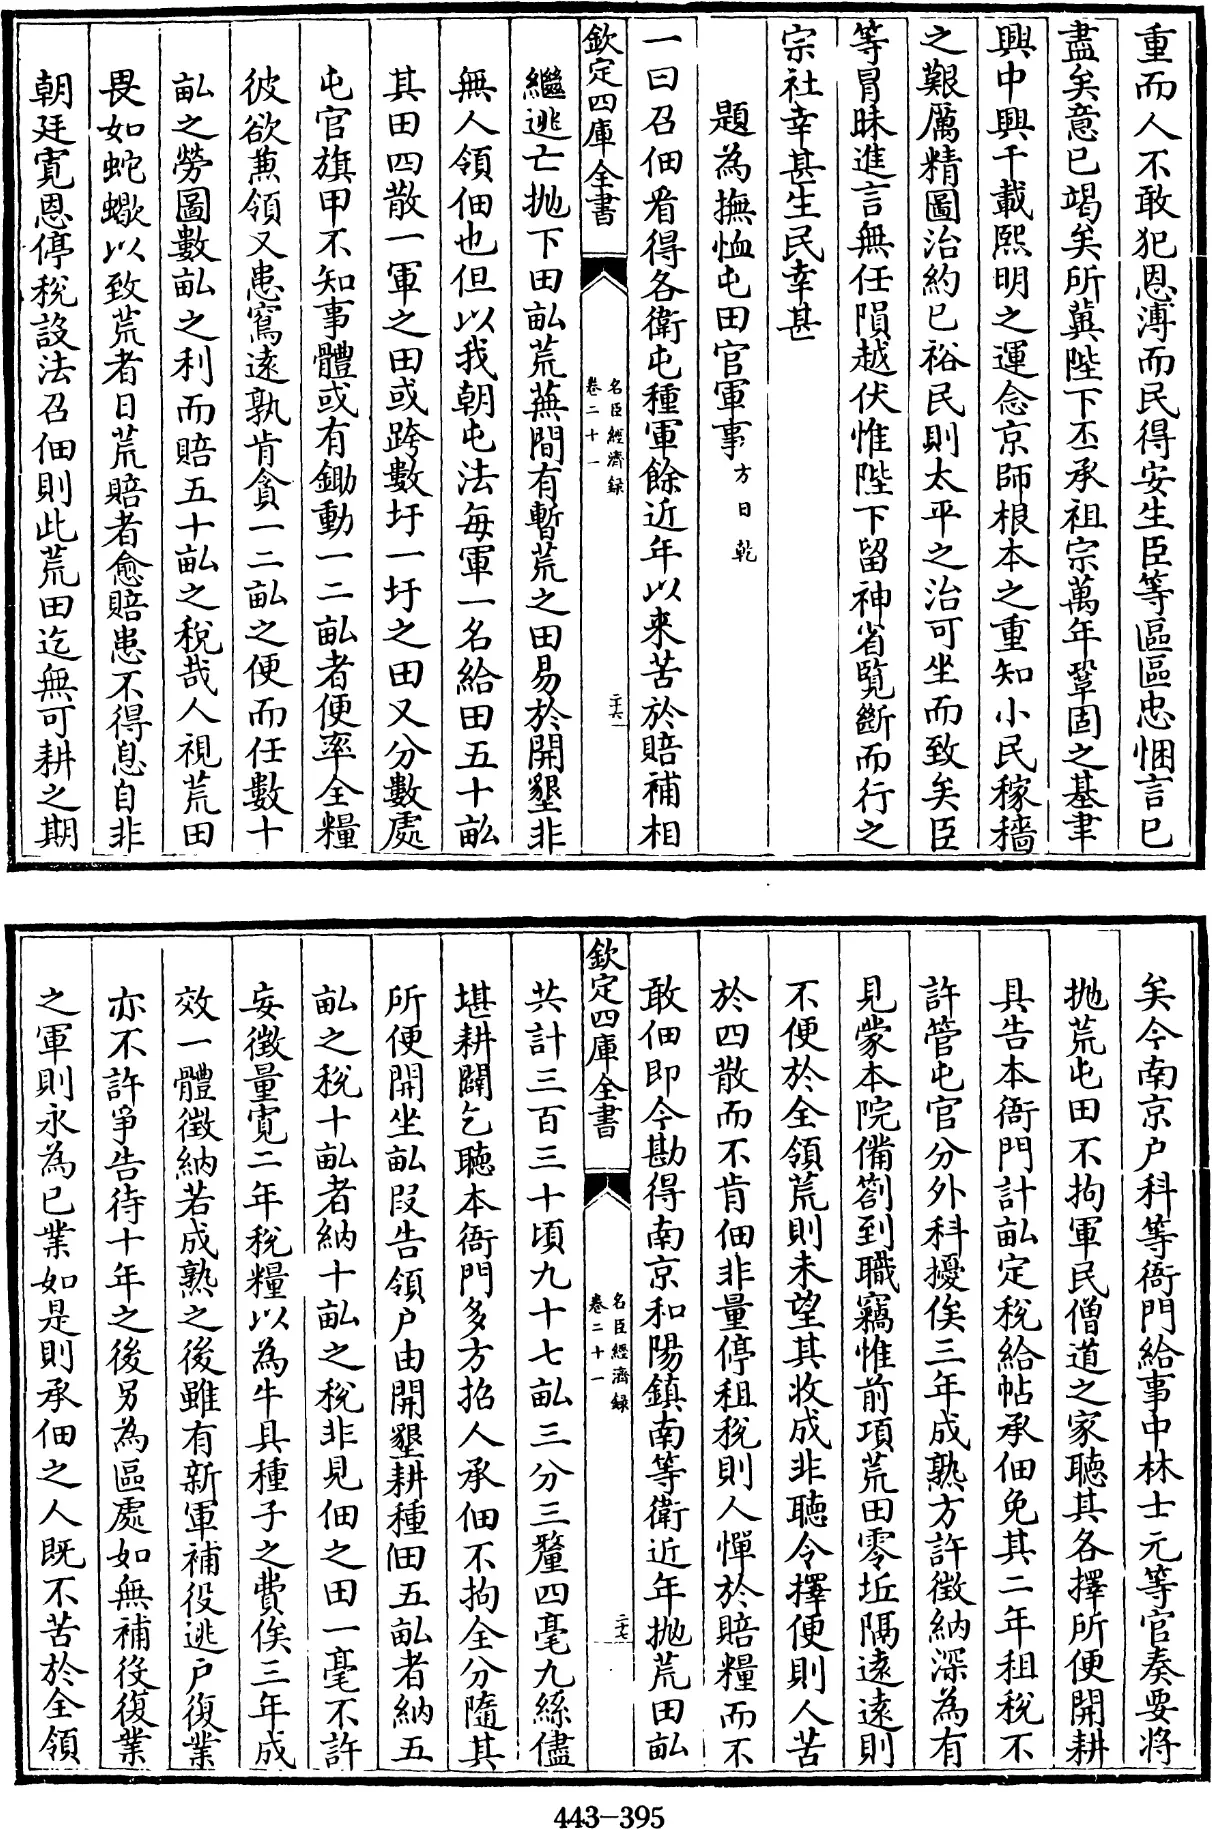 重而人不敢犯恩溥而民得安生臣等區區忠悃言已
盡矣意已竭矣所冀陛下丕承祖宗萬年鞏固之基聿
興中興千載熙明之運念京師根本之重知小民稼穡
之艱厲精圖治約已裕民則太平之治可坐而致矣臣
等冐昧進言無任隕越伏惟陛下留神省覽斷而行之
宗社幸甚生民幸甚
題為撫恤屯田官軍事方日乾
一曰召佃看得各衛屯種軍餘近年以來苦於賠補相
欽定四庫全書
名臣經濟録
卷二十一
二十六
繼逃亡抛下田畆荒蕪間有暫荒之田易於開墾非
無人領佃也但以我朝屯法每軍一名給田五十畆
其田四散一軍之田或跨數圩一圩之田又分數處
屯官旗甲不知事體或有鋤動一二畆者便率全糧
彼欲蕪領又患窵遠孰肯貪一二畆之便而任數十
畆之勞圖數畆之利而賠五十畆之稅哉人視荒田
畏如蛇蠍以致荒者日荒賠者愈賠患不得息自非
朝廷寛恩停稅設法召佃則此荒田迄無可耕之期
矣今南京户科等衙門給事中林士元等官奏要將
抛荒屯田不拘軍民僧道之家聽其各擇所便開耕
具告本衙門計畆定稅給帖承佃免其二年租稅不
許管屯官分外科擾俟三年成熟方許徵納深為有
見蒙本院備劄到職竊惟前項荒田零坵隔遠遠則
不便於全領荒則未望其收成非聽令擇便則人苦
於四散而不肯佃非量停租稅則人憚於賠糧而不
敢佃即今勘得南京和陽鎮南等衛近年抛荒田畆
欽定四庫全書
名臣經濟録
卷二十一
二十七
共計三百三十頃九十七畆三分三釐四毫九絲儘
堪耕闢乞聽本衙門多方招人承佃不拘全分隨其
所便開坐畆段告領户由開墾耕種佃五畆者納五
畆之稅十畆者納十畆之稅非見佃之田一毫不許
妄徵量寛二年稅糧以為牛具種子之費俟三年成
效一體徵納若成熟之後雖有新軍補役逃户復業
亦不許爭告待十年之後另為區處如無補役復業
之軍則永為已業如是則承佃之人既不苦於全領
443-395